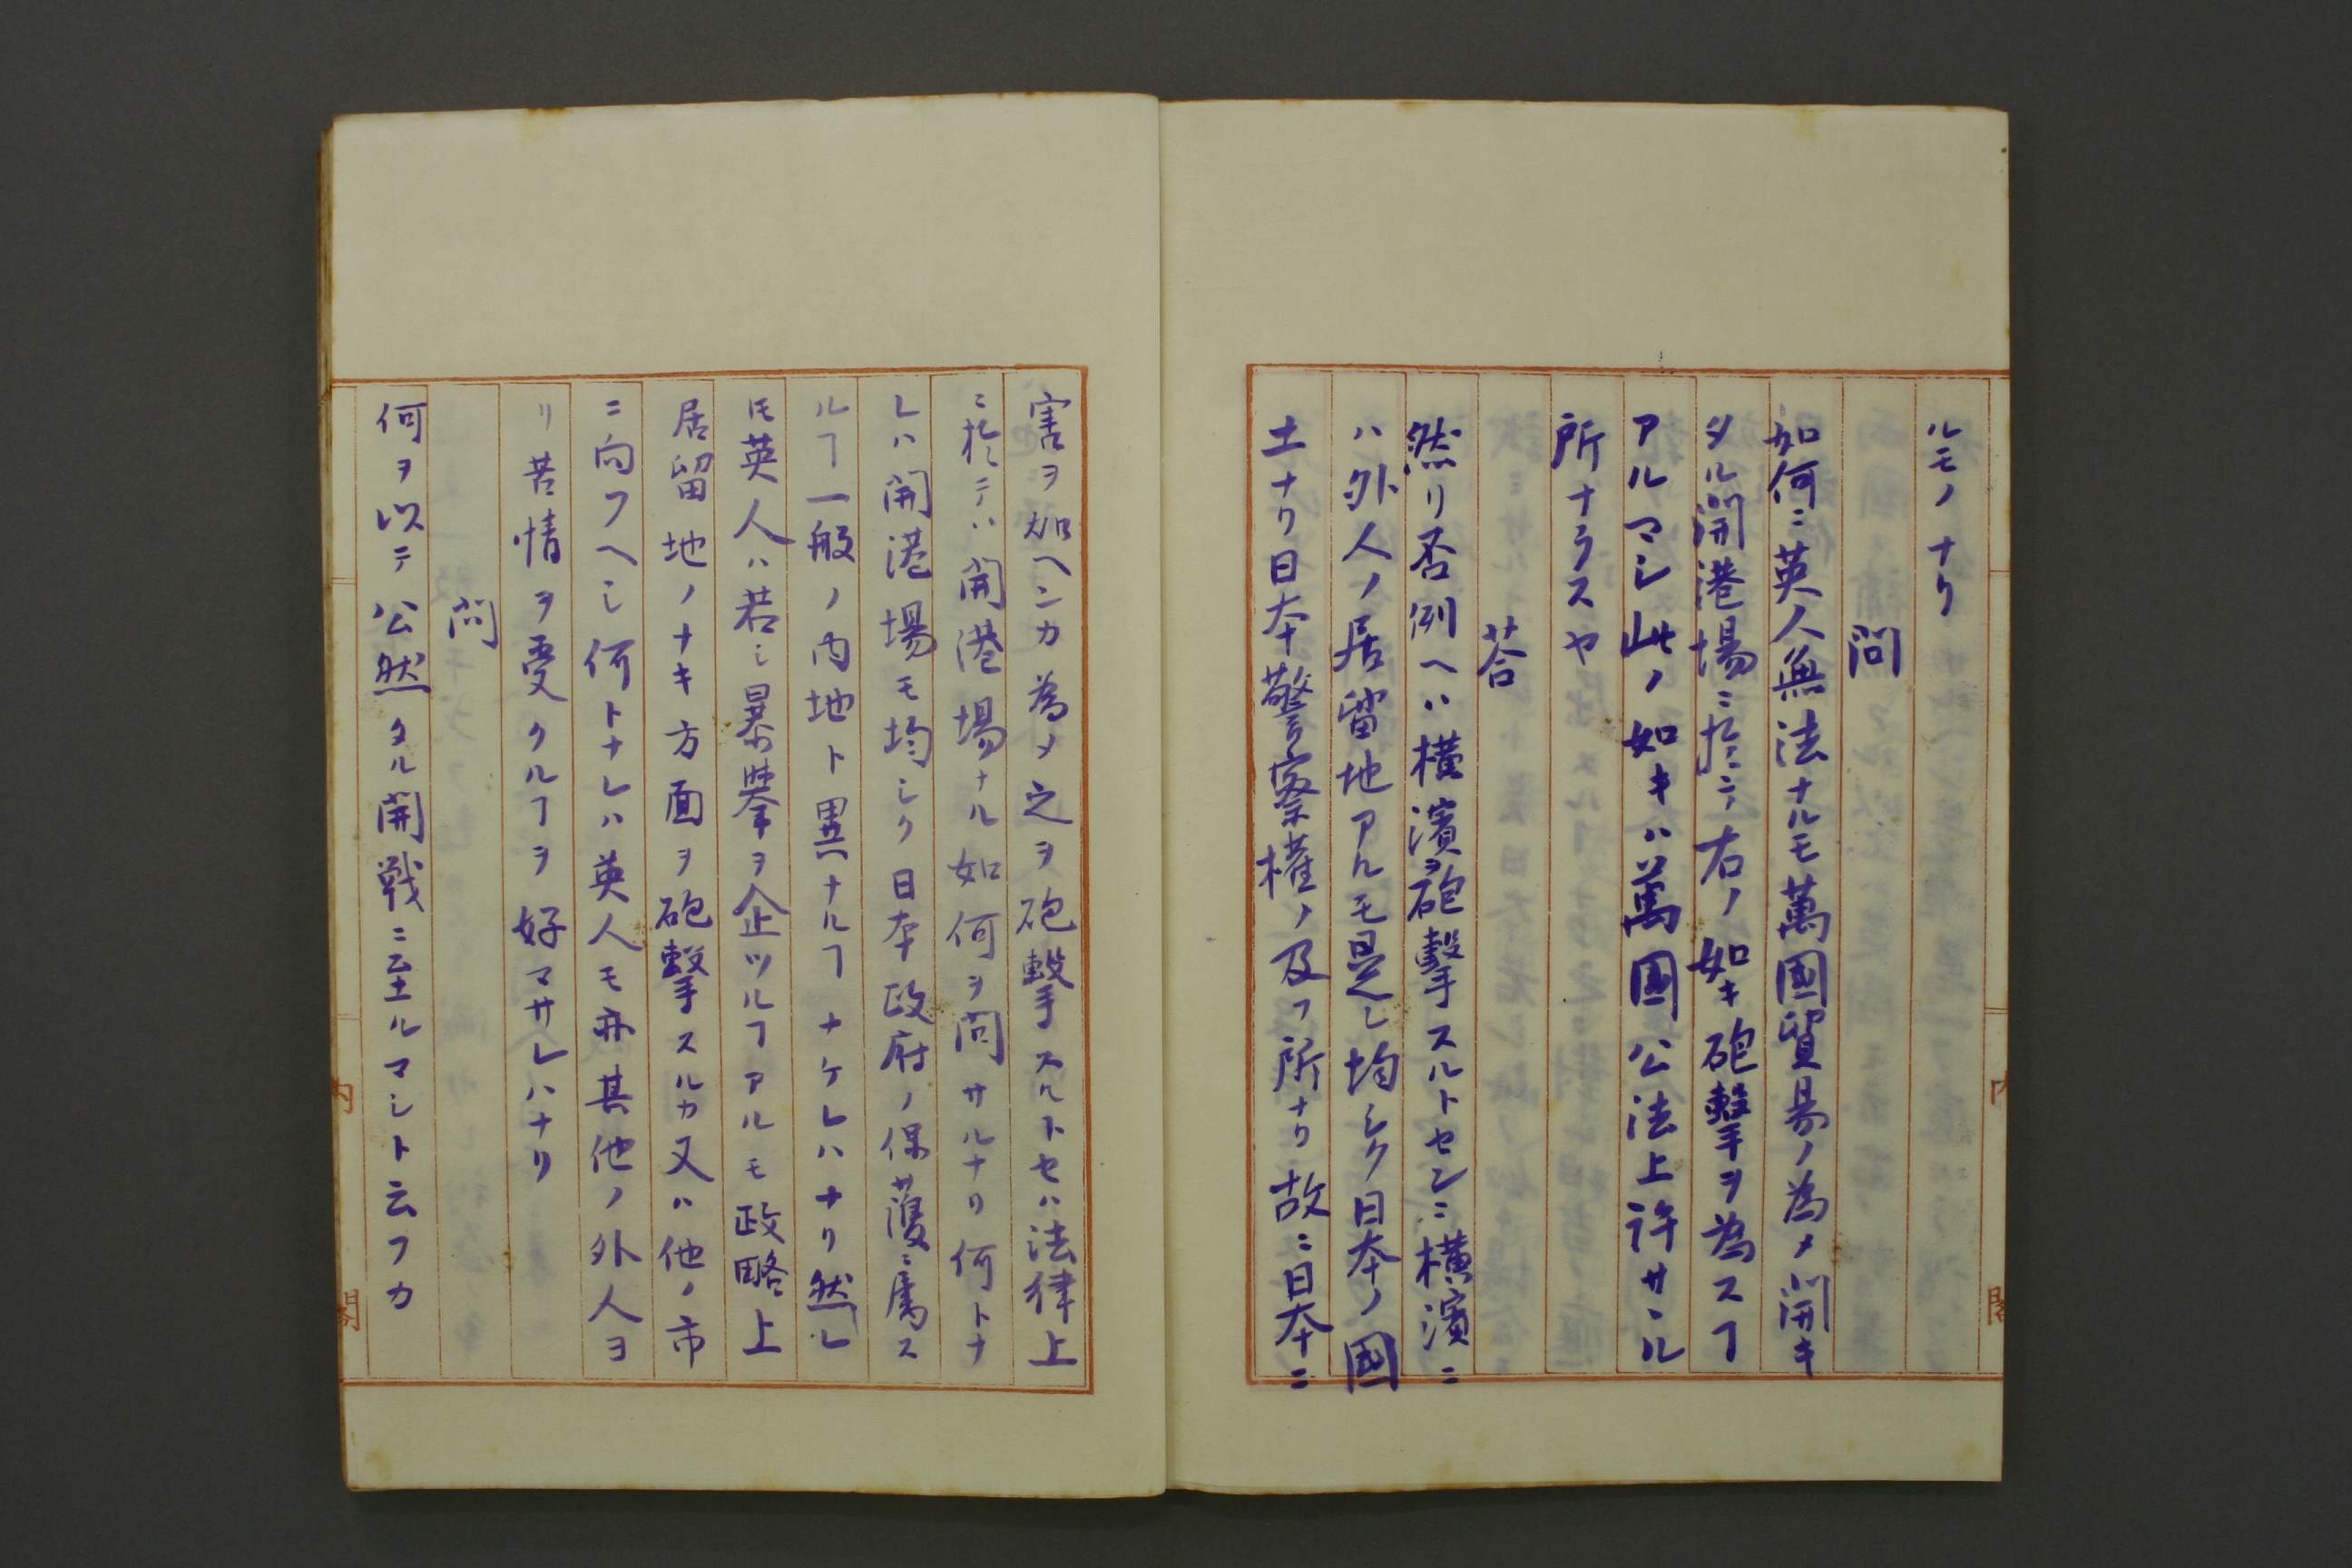 ルモノナリ
問
如何ニ英人無法ナルモ萬國貿易ノ為メ開キ
タル開港場ニ於テ右ノ如キ砲撃ヲ為スヿ
アルマシ此ノ如キハ萬國公法上許サヽル
所ナラスヤ
荅
然リ否例ヘハ横濱ヲ砲撃スルトセンニ横濱ニ
ハ外人ノ居留地アルモ是レ均シク日本ノ國
土ナリ日本警察権ノ及フ所ナリ故ニ日本ニ
害ヲ加ヘンカ為メ之ヲ砲撃スルトセハ法律上
ニ於テハ開港場ナル如何ヲ問サルナリ何トナ
レハ開港場モ均シク日本政府ノ保護ニ属ス
ルヿ一般ノ内地ト異ナルヿナケレハナリ然レ
𪜈英人ハ若シ暴挙ヲ企ツルヿアルモ政略上
居留地ノナキ方面ヲ砲撃スルカ又ハ他ノ市
ニ向フヘシ何トナレハ英人モ亦其他ノ外人ヨ
リ苦情ヲ受クルヿヲ好マサレハナリ
問
何ヲ以テ公然タル開戦ニ至ルマシト云フカ
内閣
内閣